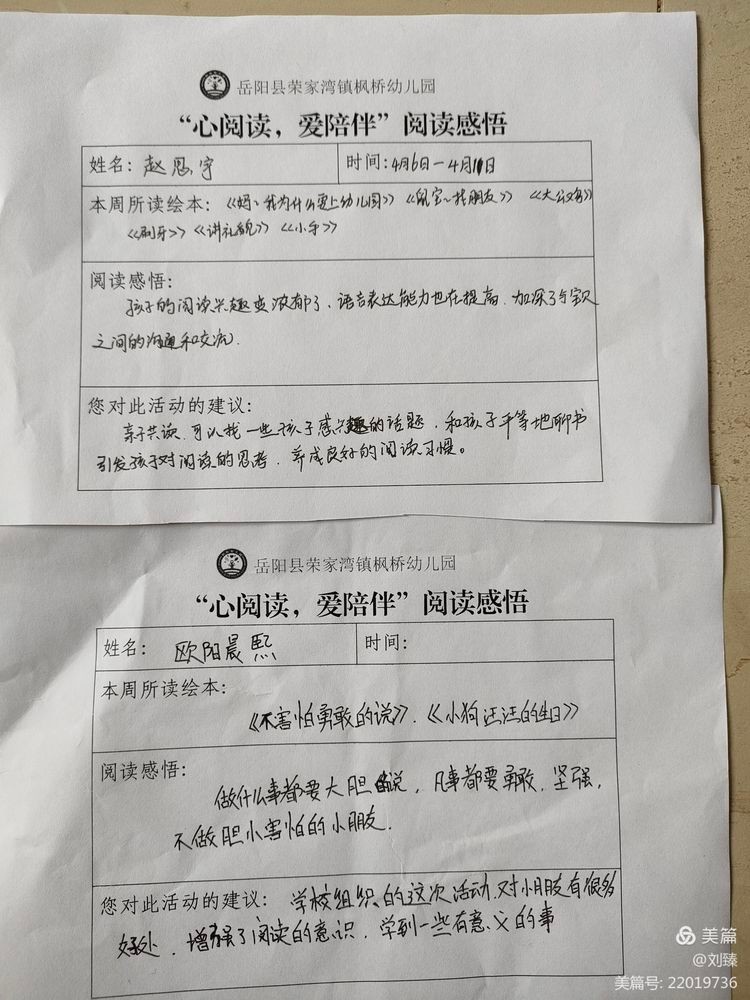 岳阳县荣家湾镇枫桥幼儿园
“心阅读，爱陪伴”阅读感悟
姓名：赵思宇 时间：4月6日－4月11日
本周所读绘本：《妈、我为什么要上幼儿园》《鼠宝～找朋友》《大公文各》
《刷牙》《讲礼貌》《小手》
阅读感悟：
孩子的阅读兴趣变浓郁了、语言表达能力也在提高.加深了与宝贝
之间的沟通和交流.
您对此活动的建议：
亲子共读.可以找一些孩子感兴趣的话题，和孩子平等地聊书
引发孩子对阅读的思考，养成良好的阅读习惯。
岳阳县荣家湾镇枫桥幼儿园
“心阅读，爱陪伴”阅读感悟
姓名：欧阳晨熙 时间：
本周所读绘本：
《不害怕勇敢的说》.《小狗汪汪的生日》
阅读感悟：
做什么事都要大胆说，凡事都要勇敢.坚强，
不做胆小害怕的小朋友.
您对此活动的建议：学校组织的这次活动.对小朋友有很多
好处，增强了阅读的意识，学到一些有意义的事
美篇
@刘臻
美篇号：22019736